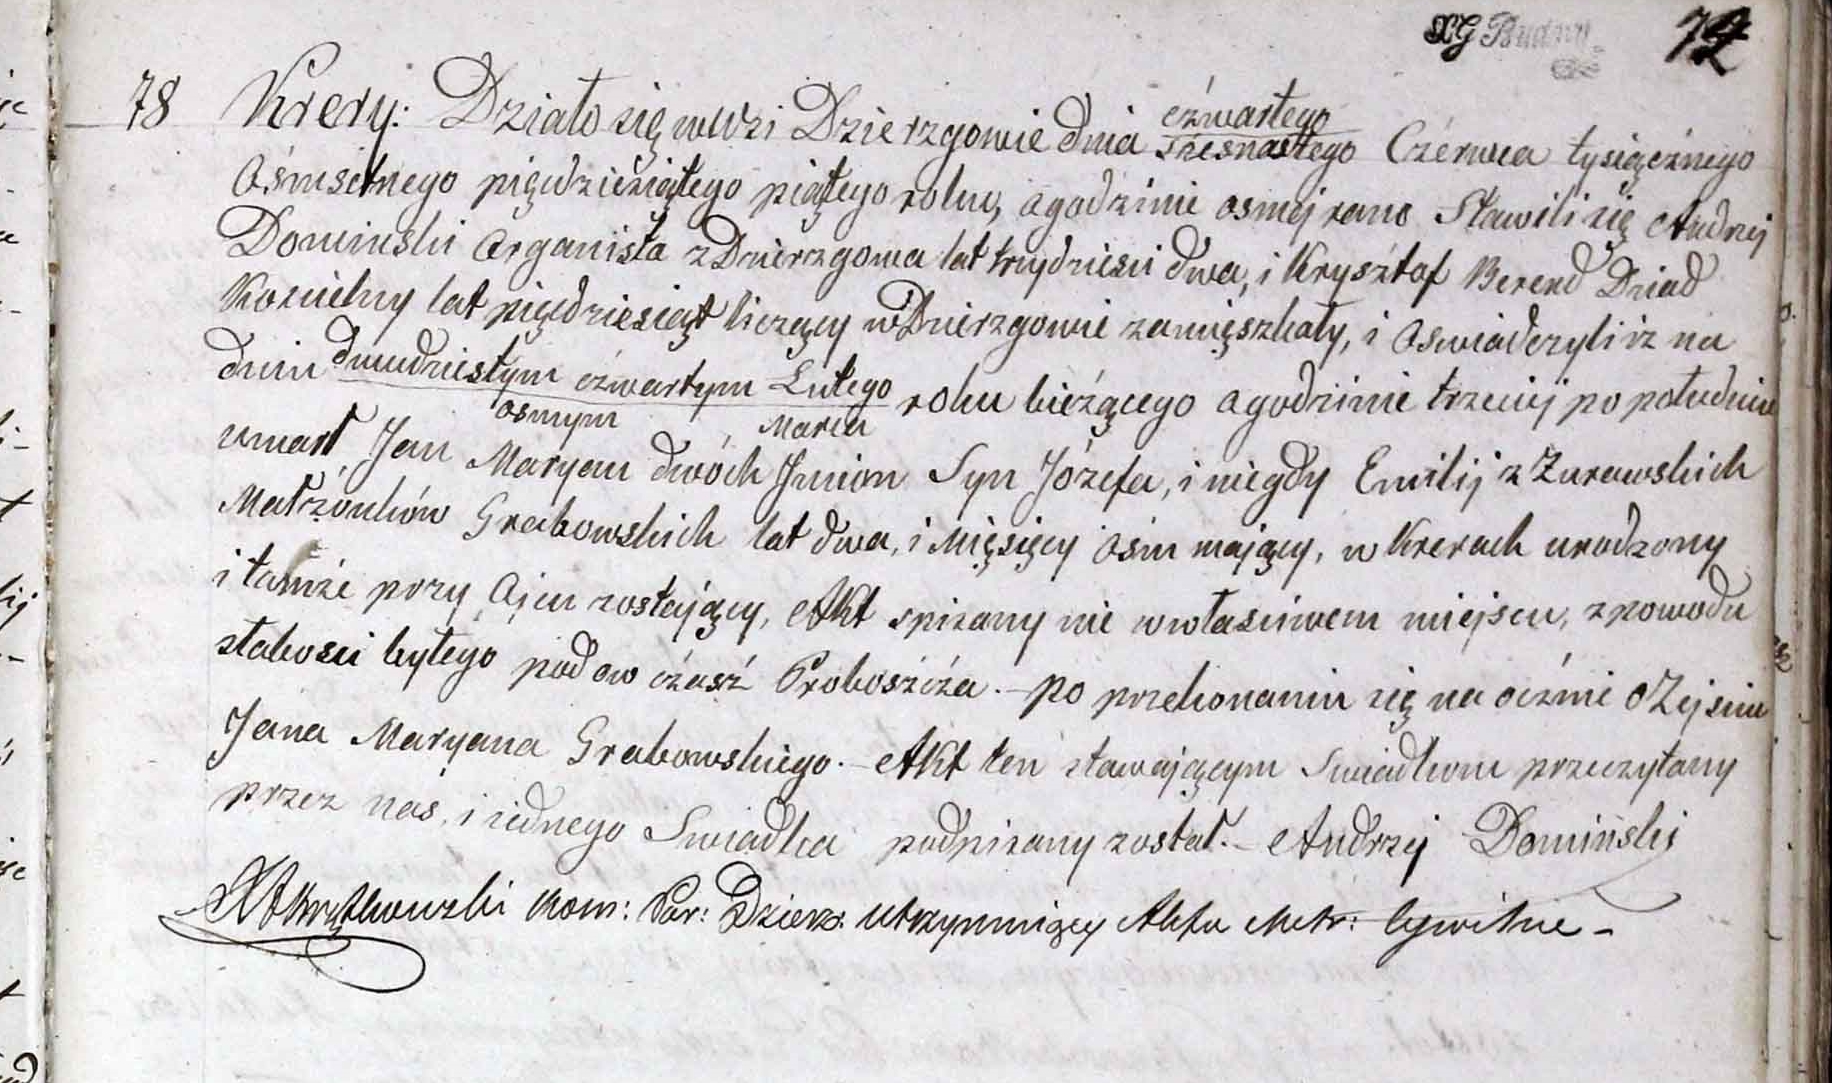 XG Budny 72
78 Krery: Działo się w wsi Dzierzgowie dnia czwartego
trzesnastego Czerwca tysiącznego
Ośmsetnego pięćdziesiątego piątego roku, o godzinie osmej rano Stawili się Andrzej
Domiński Organista z Dzierzgowa lat trzydzieści dwa, i Krysztof Berend Dziad
Kościelny lat pięćdziesiąt liczący w Dzierzgowie zamięszkały, i Oswiadczyli iż na
dniu dwudziestym czwartym Lutego roku bieżącego o godzinie trzeciej po południu
osmym Marca
umarł Jan Maryan dwóch Imion Syn Józefa, i niegdy Emilij z Żurawskich
Małżonków Grabowskich lat dwa, i Mięsięcy ośm mający, w Krerach urodzony
i tamże przy Ojcu zostający, Akt spisany nie w właściwem miejscu, z powodu
słabosci byłego pod ow czasz Proboszcza. – po przekonaniu się na ocznie o Zejściu
Jana Maryana Grabowskiego. – Akt ten stawającym Swiadkom przeczytany
przez nas, i iednego Swiadka podpisany został. – Andrzej Domiński
Kom: Par: Dzierz: utrzymuiący Akta Metr: Cywilne –